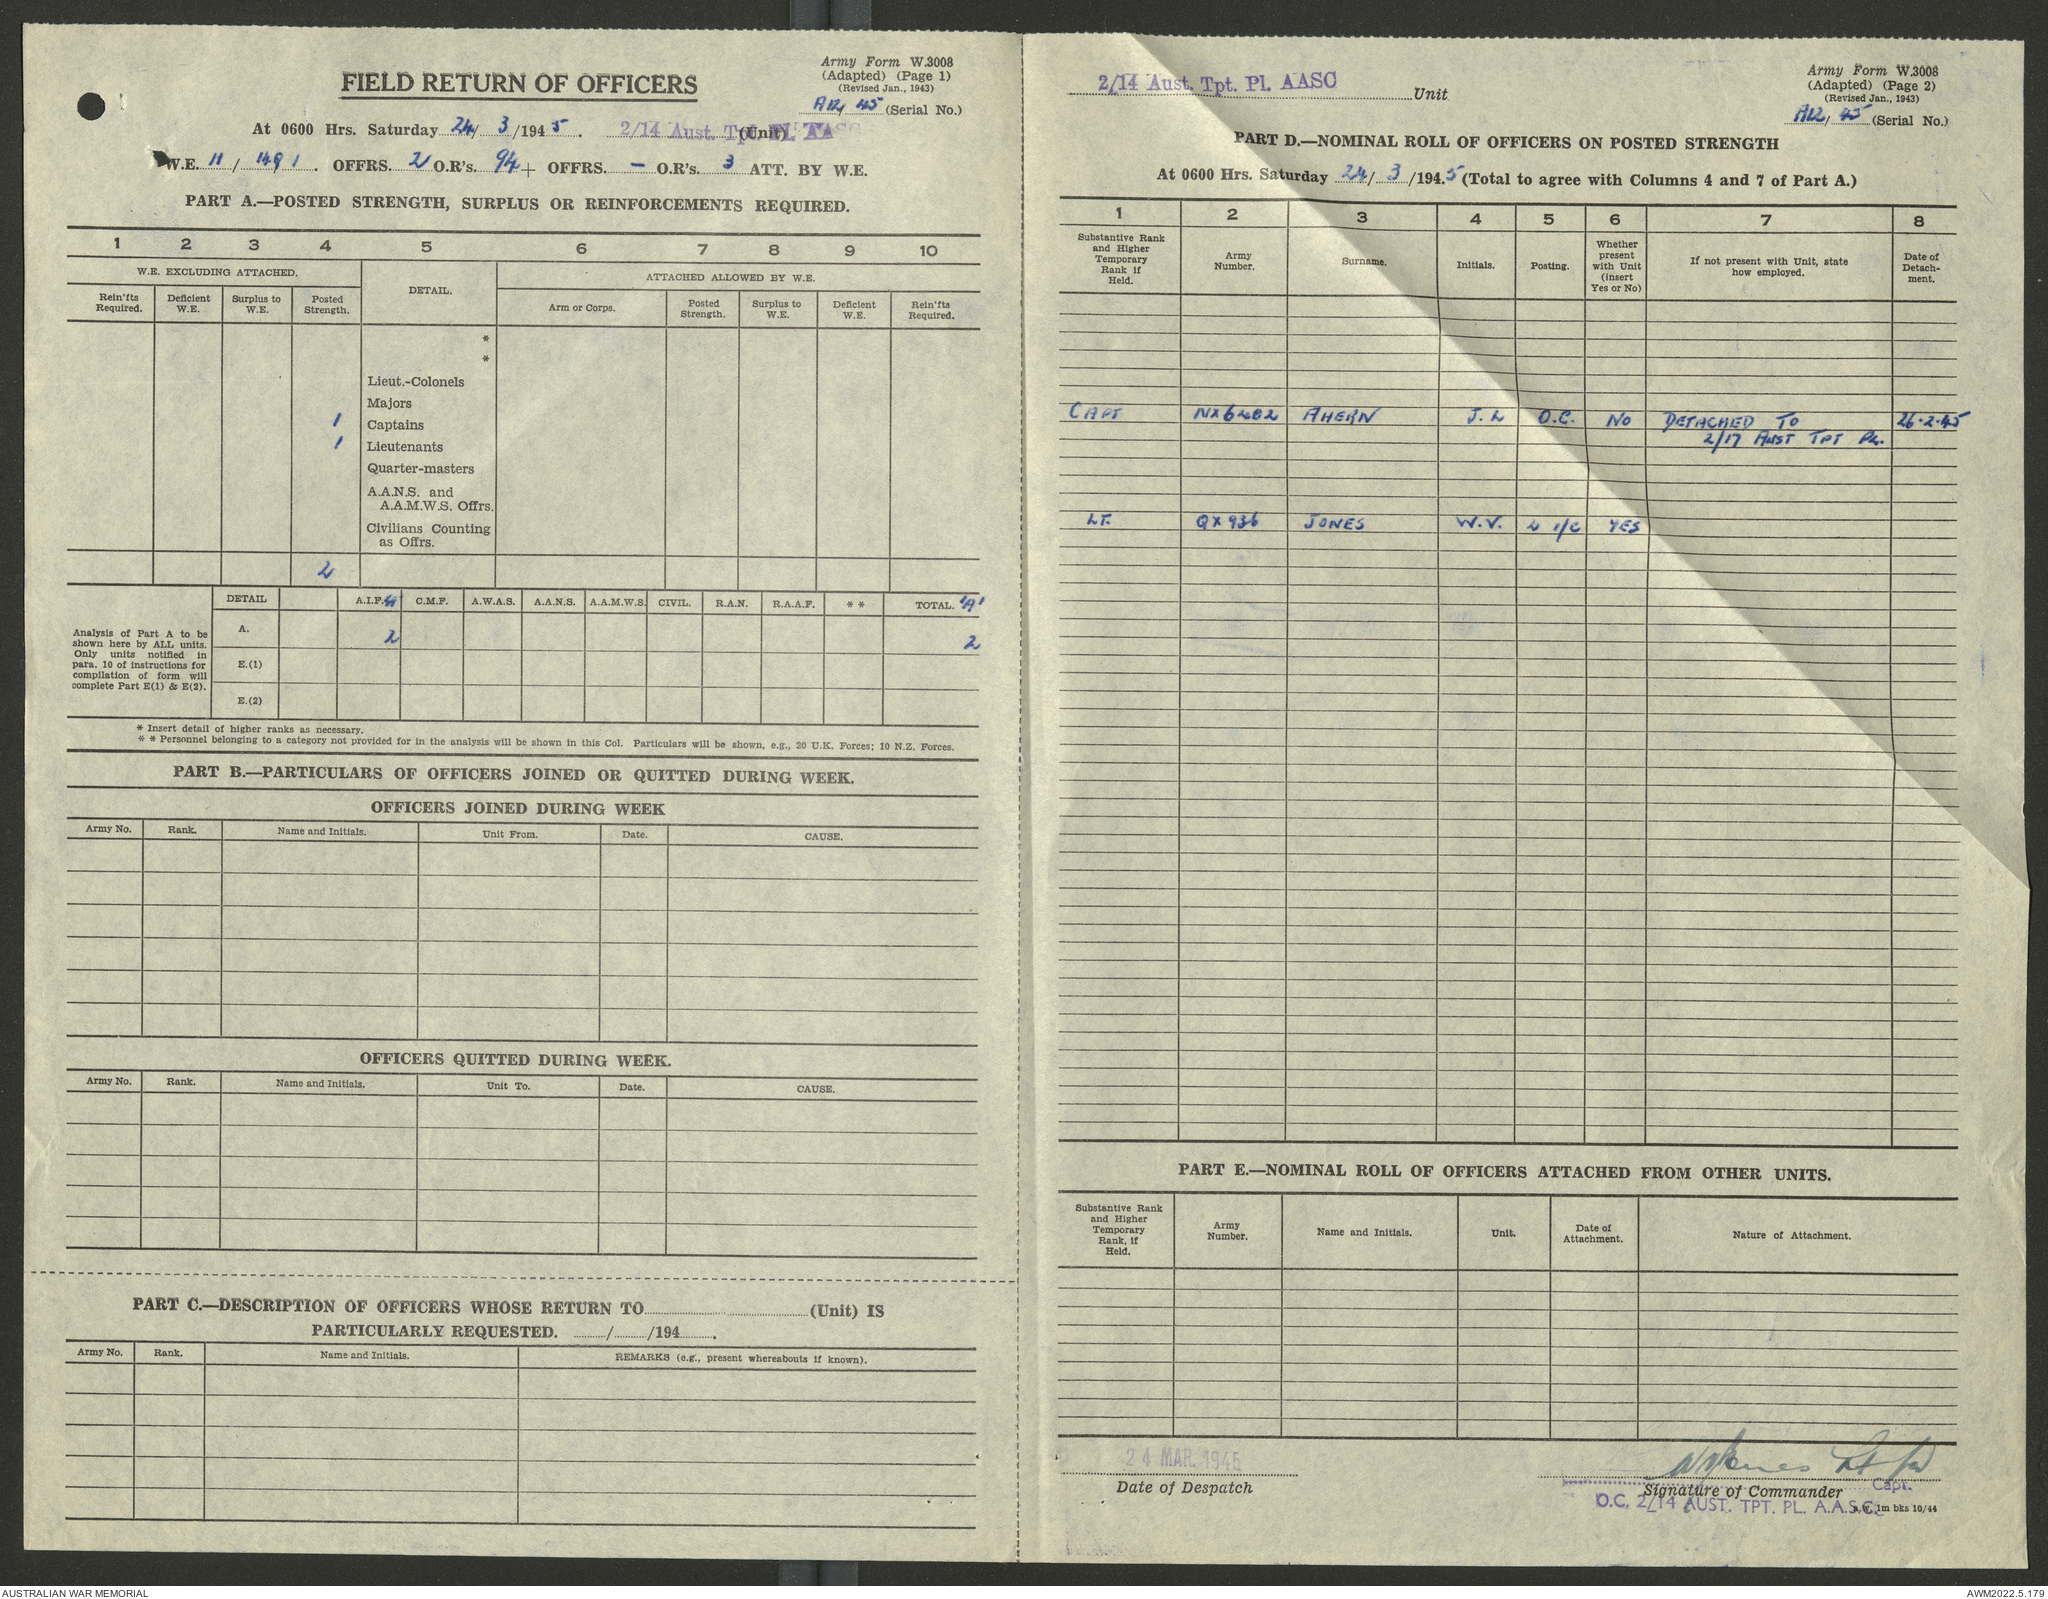 Army Form W.3008
(Adapted) (Page 1)
(Revised Jan., 1943)
A12/45 (Serial No.)
FIELD RETURN OF OFFICERS
At 0600 Hrs. Saturday 24/3/1945. 2/14 Aust. Tpt. Pl. AASC (Unit)
W.E. 11/1491. OFFRS. 2 O.R's. 94 + OFFRS. - O.R's. 3 ATT. BY W.E.
PART A.—POSTED STRENGTH, SURPLUS OR REINFORCEMENTS REQUIRED.
1 2 3 4 5 6 7 8 9 10
W.E. EXCLUDING ATTACHED. DETAIL. ATTACHED ALLOWED BY W.E.
Rein'fts Required. Deficient W.E. Surplus to W.E. Posted Strength. Arm or Corps. Posted Strength. Surplus to W.E. Deficient W.E. Rein'fts Required.
*
*
Lieut.-Colonels
Majors
1 Captains
1 Lieutenants
Quarter-masters
A.A.N.S. and
A.A.M.W.S. Offrs.
Civilians Counting
as Offrs.
2
Analysis of Part A to be
shown here by ALL units.
Only units notified in
para. 10 of instructions for
compilation of form will
complete Part E(1) & E(2).
DETAIL A.I.F. C.M.F. A.W.A.S. A.A.N.S. A.A.M.W.S. CIVIL. R.A.N. R.A.A.F. * * TOTAL. 'A'
A. 2 2
E.(1)
E.(2)
* Insert detail of higher ranks as necessary.
* * Personnel belonging to a category not provided for in the analysis will be shown in this Col. Particulars will be shown, e.g., 20 U.K. Forces; 10 N.Z. Forces.
PART B.—PARTICULARS OF OFFICERS JOINED OR QUITTED DURING WEEK.
OFFICERS JOINED DURING WEEK
Army No. Rank. Name and Initials. Unit From. Date. CAUSE.
OFFICERS QUITTED DURING WEEK.
Army No. Rank. Name and Initials. Unit To. Date. CAUSE.
PART C.—DESCRIPTION OF OFFICERS WHOSE RETURN TO (Unit) IS
PARTICULARLY REQUESTED. / /194 .
Army No. Rank. Name and Initials. REMARKS (e.g., present whereabouts if known).
2/14 Aust. Tpt. Pl. AASC Unit
Army Form W.3008
(Adapted) (Page 2)
(Revised Jan., 1943)
A12/45 (Serial No.)
PART D.—NOMINAL ROLL OF OFFICERS ON POSTED STRENGTH
At 0600 Hrs. Saturday 24/3/1945 (Total to agree with Columns 4 and 7 of Part A.)
1 2 3 4 5 6 7 8
Substantive Rank and Higher Temporary Rank if Held. Army Number. Surname. Initials. Posting. Whether present with Unit (insert Yes or No) If not present with Unit, state how employed. Date of Detachment.
CAPT NX6402 AHERN J.L O.C. NO DETACHED TO 26.2.45
2/17 AUST TPT PL.
LT. QX936 JONES W.V. 2 I/C YES
PART E.—NOMINAL ROLL OF OFFICERS ATTACHED FROM OTHER UNITS.
Substantive Rank and Higher Temporary Rank, if Held. Army Number. Name and Initials. Unit. Date of Attachment. Nature of Attachment.
24 MAR 1945
Date of Despatch
WVJones Lt for
Capt.
Signature of Commander
O.C. 2/14 AUST. TPT. PL. A.A.S.C. 1m bks 10/44
AUSTRALIAN WAR MEMORIAL
AWM2022.5.179